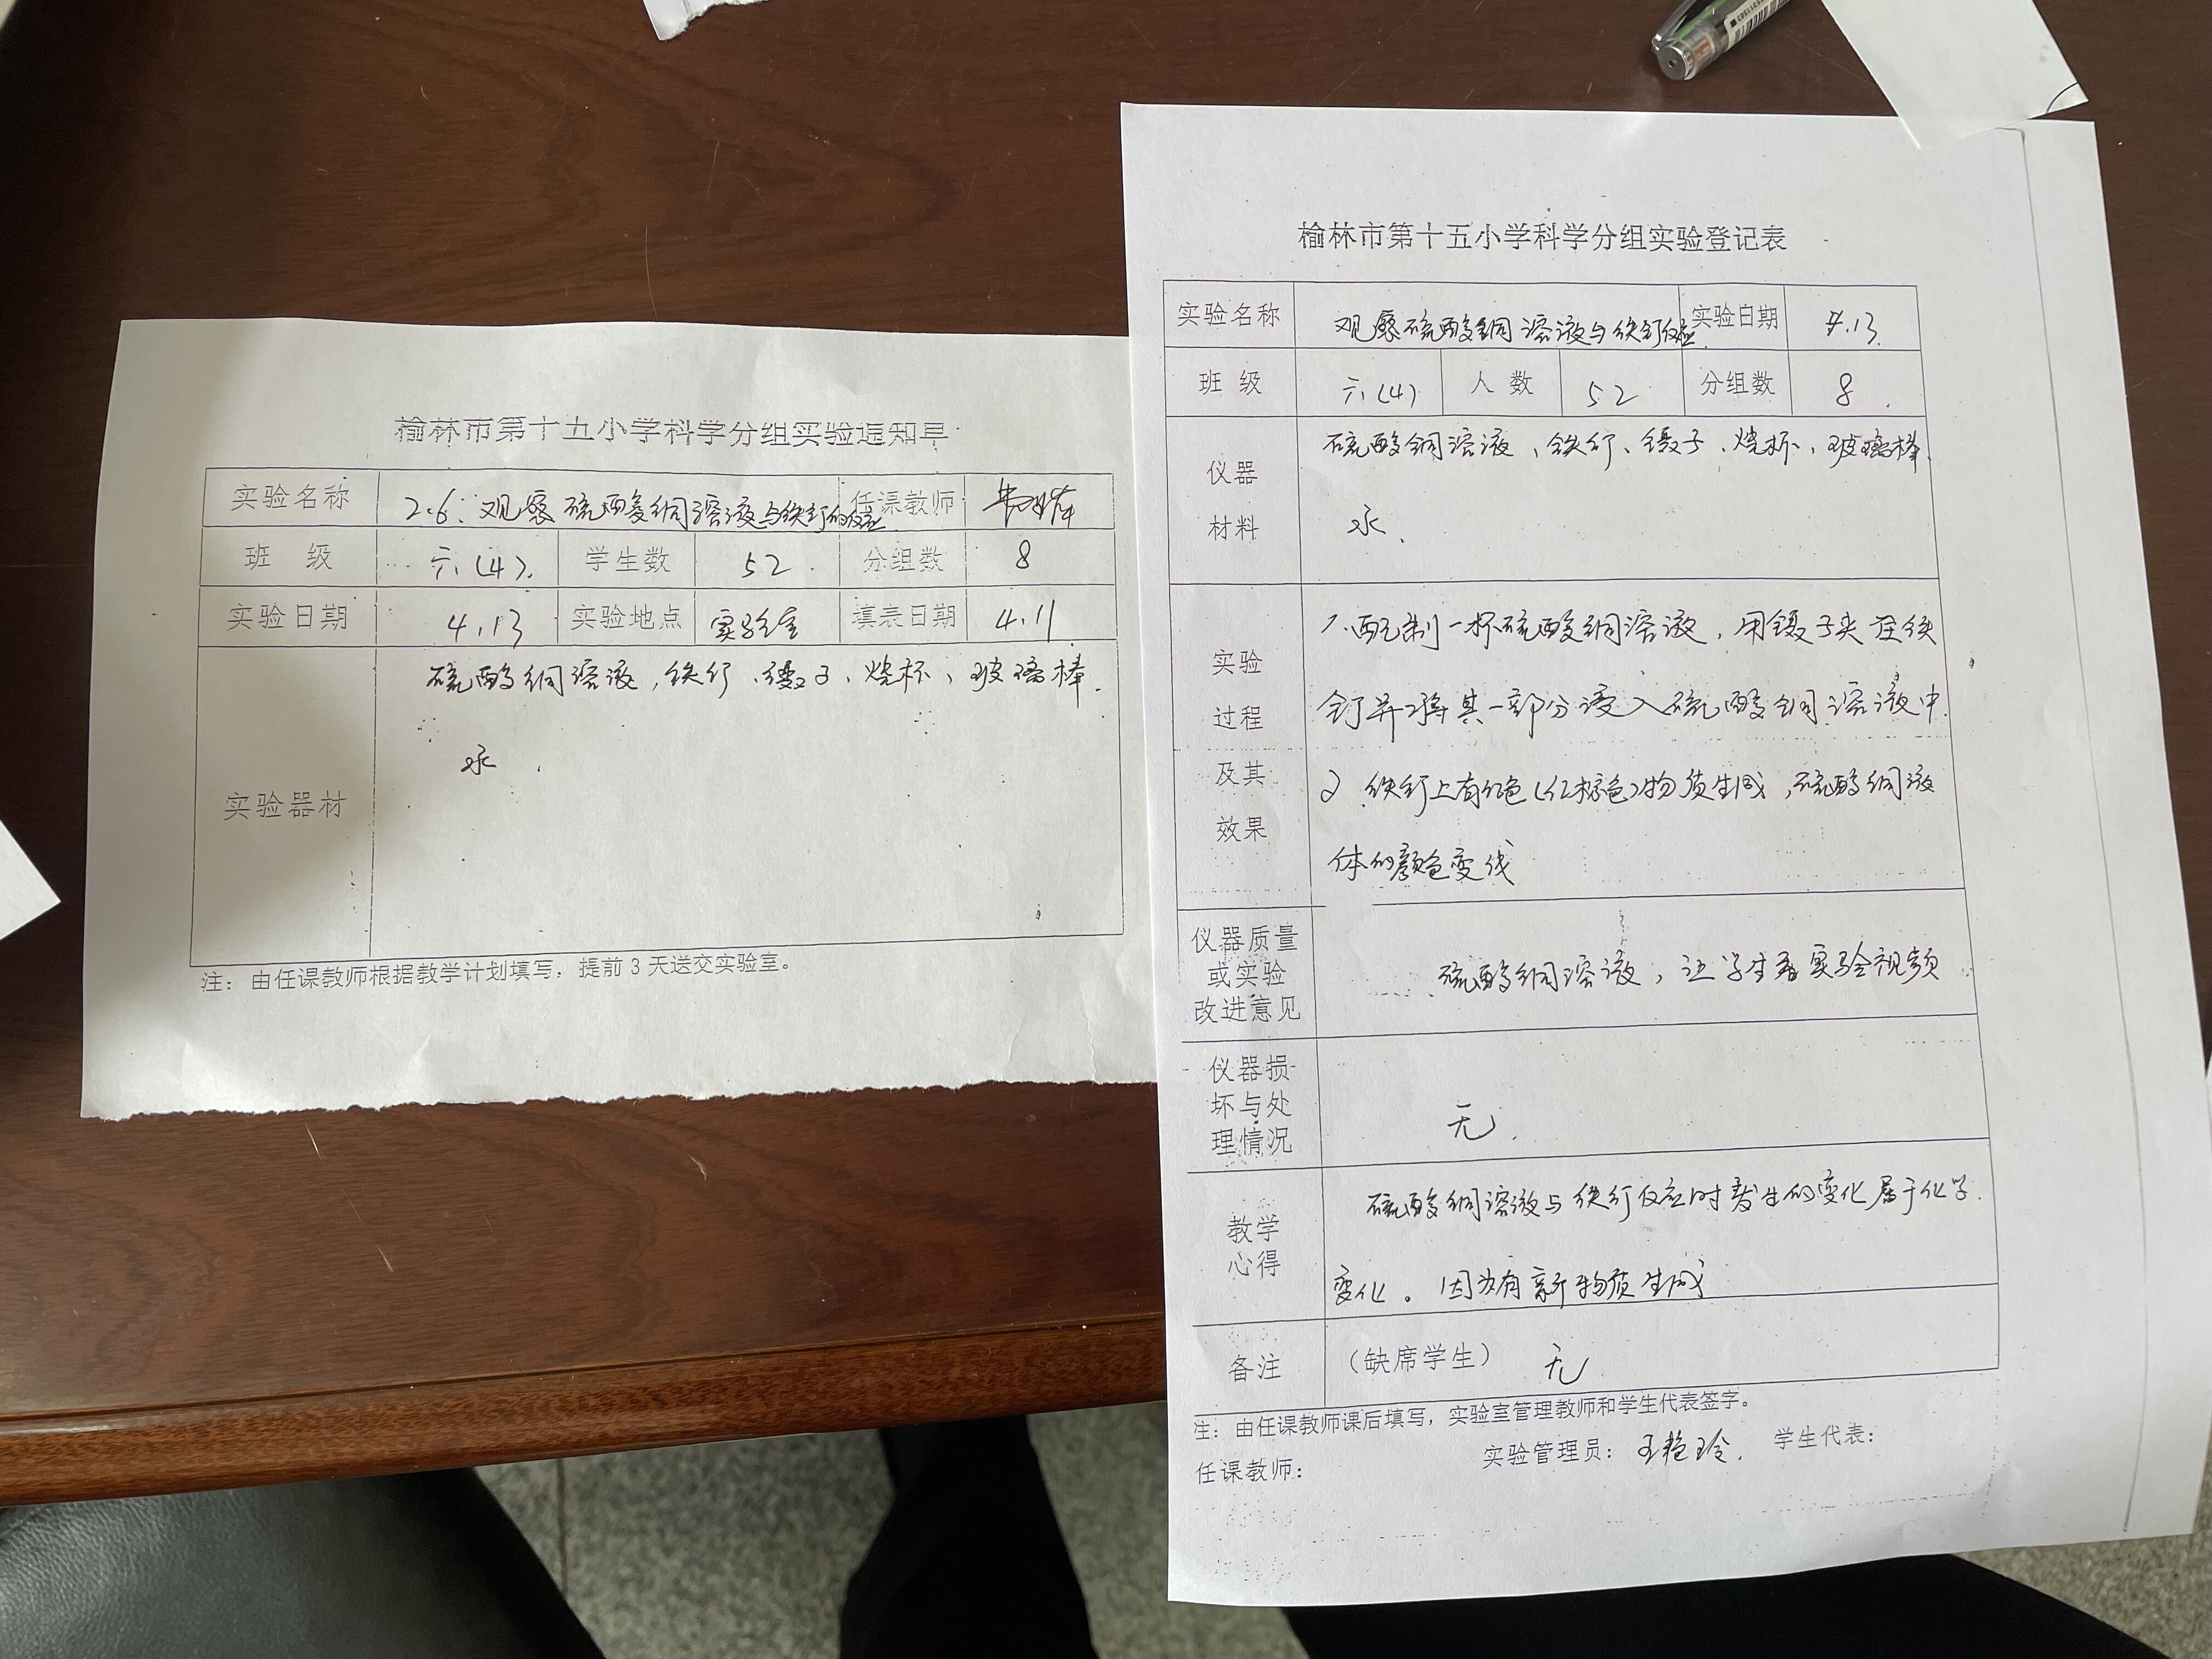 榆林市第十五小学科学分组实验通知单
实验名称 2.6:观察硫酸铜溶液与铁钉的反应 任课教师
班 级 六(4). 学生数 52 分组数 8
实验日期 4.13 实验地点 实验室 填表日期 4.11
实验器材 硫酸铜溶液,铁钉、镊子、烧杯、玻璃棒.
水.
注: 由任课教师根据教学计划填写,提前3天送交实验室。
榆林市第十五小学科学分组实验登记表
实验名称 观察硫酸铜溶液与铁钉反应 实验日期 4.13.
班 级 六(4) 人 数 52 分组数 8
仪器材料 硫酸铜溶液、铁钉、镊子、烧杯、玻璃棒
水.
实验过程及其效果 1.配制一杯硫酸铜溶液,用镊子夹住铁
钉并将其一部分浸入硫酸铜溶液中.
2 铁钉上有红色(红棕色)物质生成,硫酸铜液
体的颜色变浅
仪器质量或实验改进意见 硫酸铜溶液,让学生看实验视频
仪器损坏与处理情况 无.
教学心得 硫酸铜溶液与铁钉反应时发生的变化属于化学
变化。因为有新物质生成
备注 (缺席学生) 无
注: 由任课教师课后填写,实验室管理教师和学生代表签字。
任课教师: 实验管理员: 王艳玲. 学生代表: